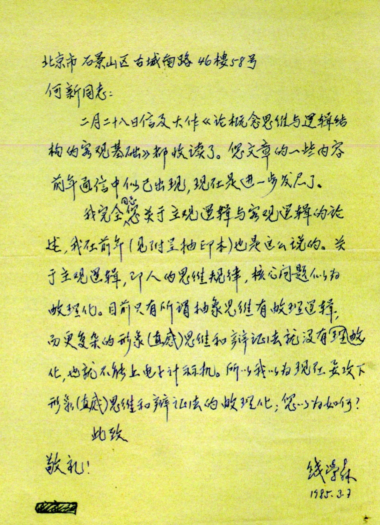 北京市石景山区古城南路46楼58号
何新同志：
二月二十八日信及大作《论概念思维与逻辑结
构的客观基础》都收读了。您文章的一些内容
前年通信中似已出现，现在是进一步发展了。
我完全同意您关于主观逻辑与客观逻辑的论
述，我在前年(见附呈抽印本)也是这么说的。关
于主观逻辑，即人的思维规律，核心问题似为
数理化。目前只有所谓抽象思维有数理逻辑，
而更复杂的形象(直感)思维和辩证法就没有数理
化，也就不能上电子计算机。所以我以为现在要攻下
形象(直感)思维和辩证法的数理化；您以为如何？
此致
敬礼！
钱学森
1985.3.7